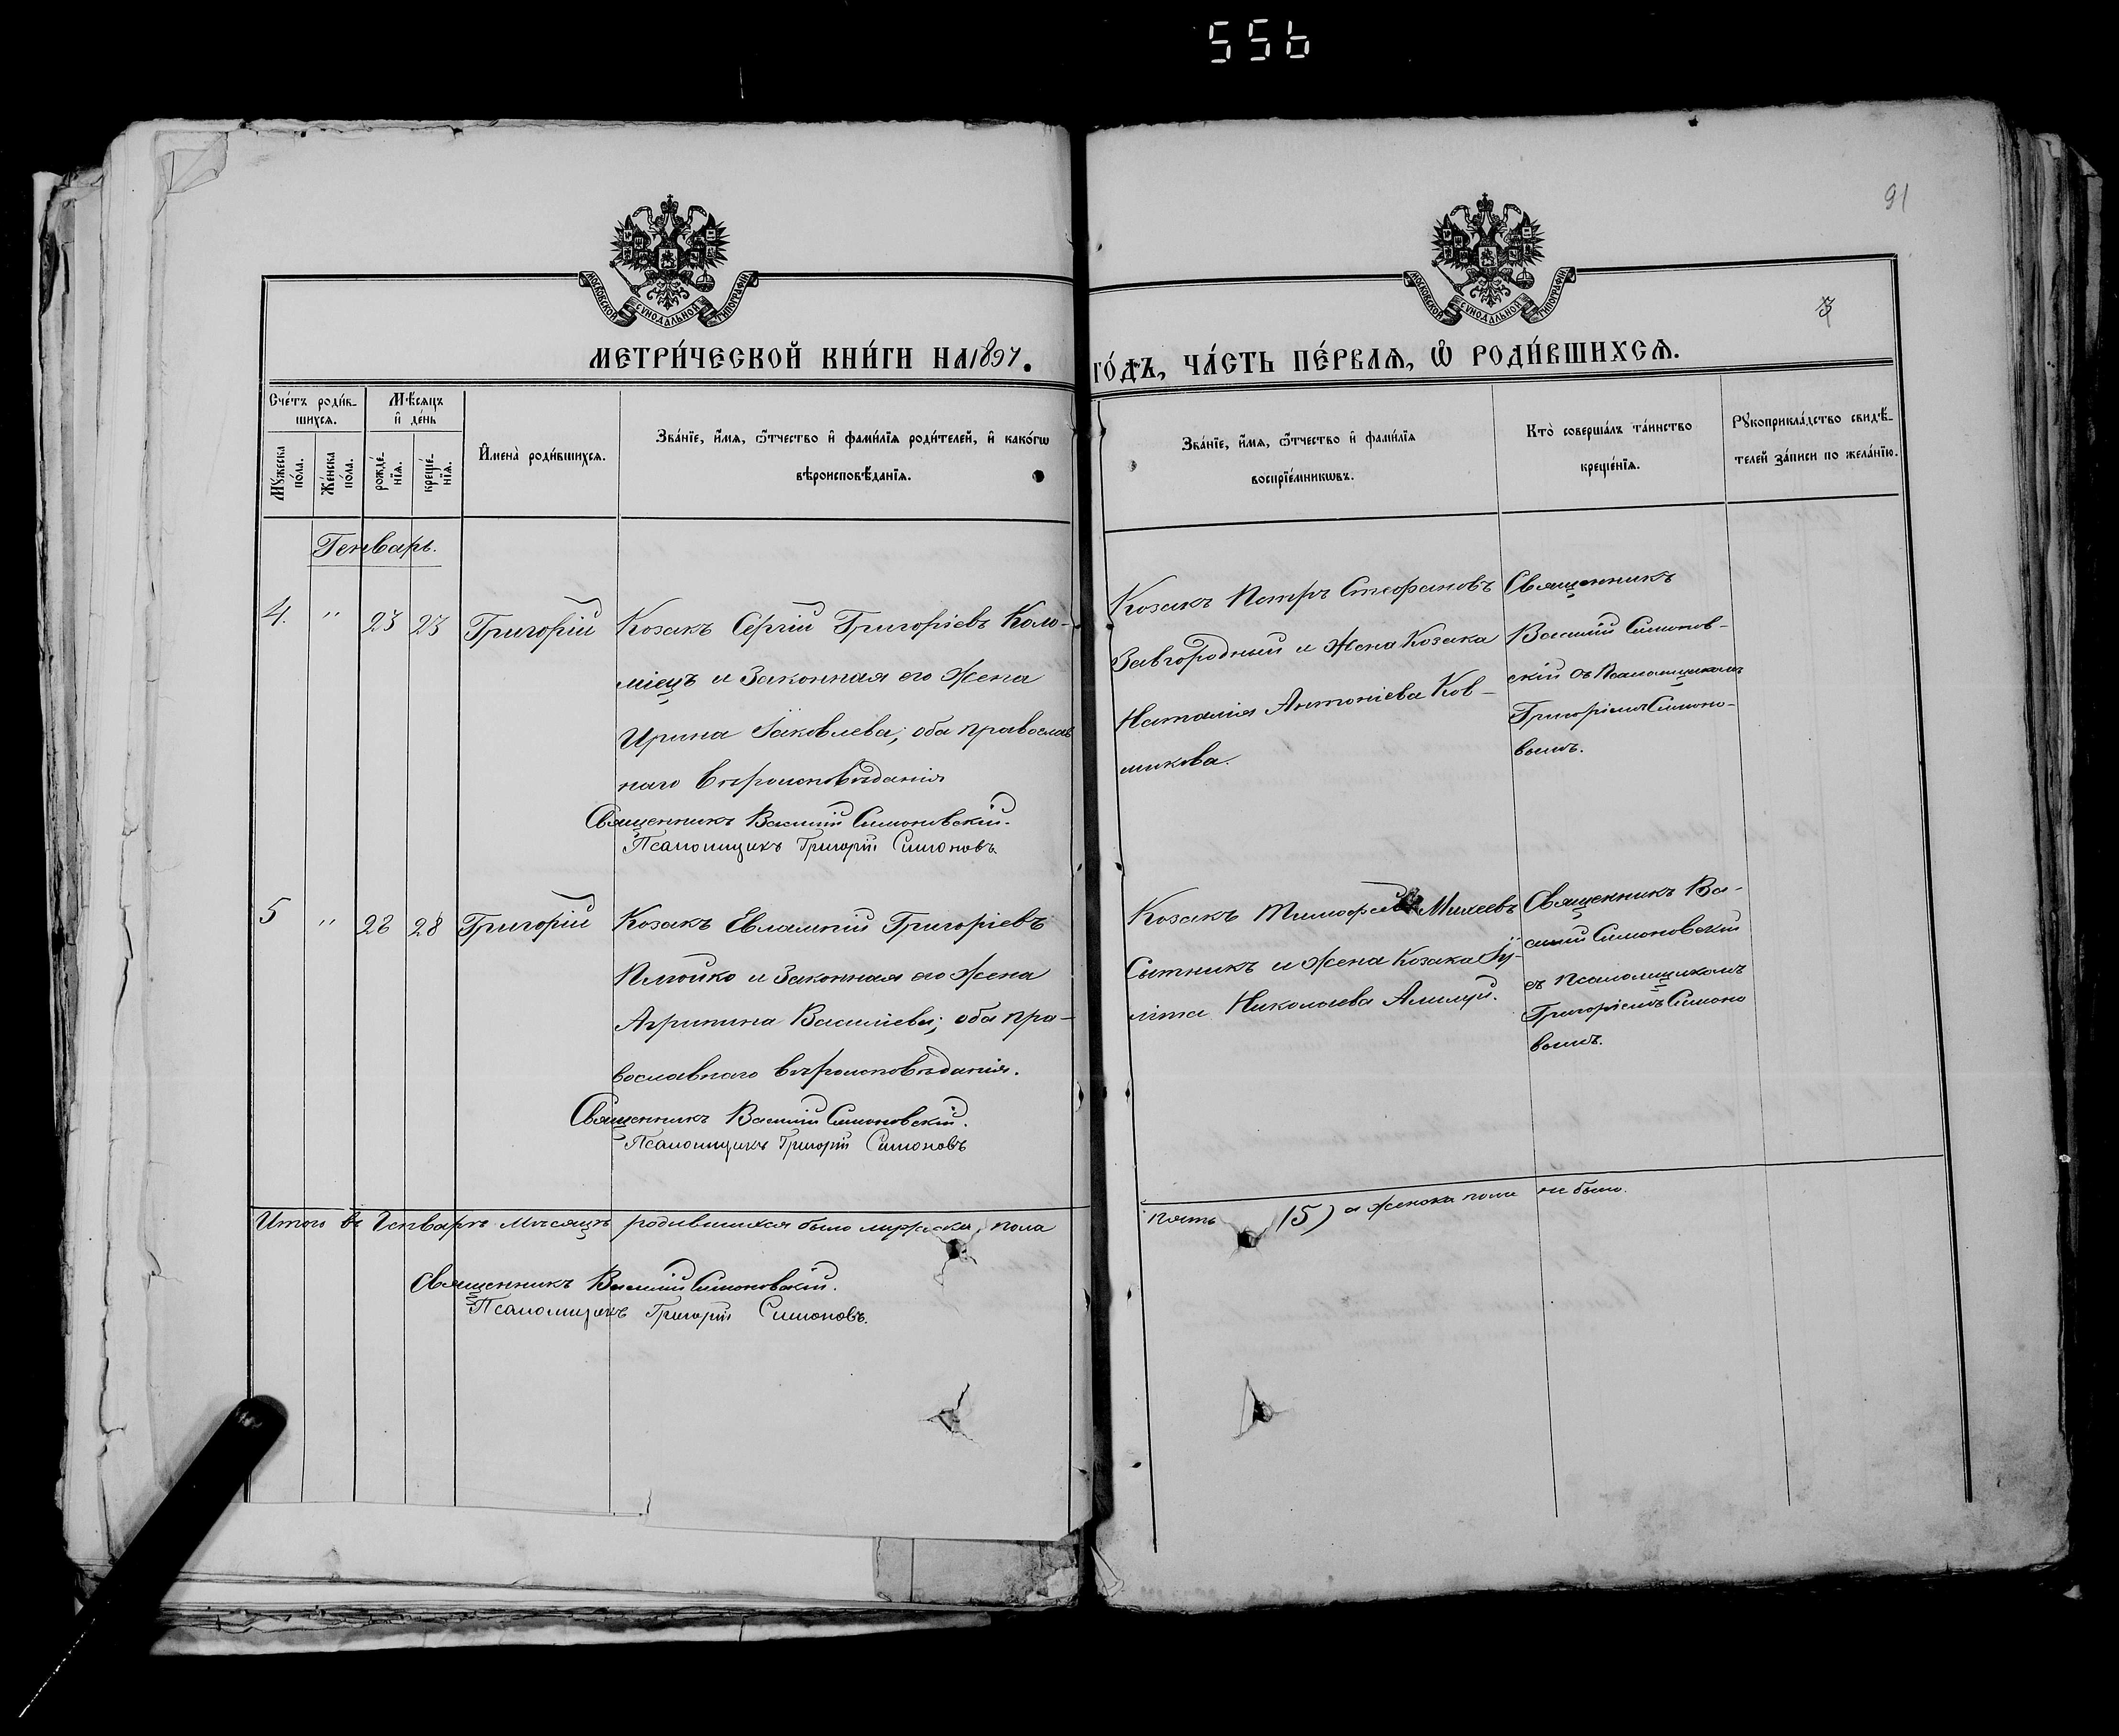 556
91
МОСКОВСКОЙ СѴНОДАЛЬНОЙ ТИПОГРАФІИ
МОСКОВСКОЙ СѴНОДАЛЬНОЙ ТИПОГРАФІИ
3
МЕТРИ́ЧЕСКОЙ КНИ́ГИ НА 1897.
ГО́ДЪ, ЧА́СТЬ ПЕ́РВАЯ, Ѿ РОДИ́ВШИХСЯ.
Сче́тъ роди́в-
шихся.
Мꙋ́жеска по́ла.
Же́нска по́ла.
Мѣ́сяцъ
и҆ де́нь
рожде́-
нїя.
креще́-
нїя.
И҆мена̀ роди́вшихся.
Зва́нїе, и҆́мя, ѻ҆́тчество и҆ фами́лїя роди́телей, и҆ како́гѡ
вѣроисповѣ́данїя.
Зва́нїе, и҆́мя, ѻ҆́тчество и҆ фами́лїя
воспрїе́мникѡвъ.
Кто̀ соверша́лъ та́инство
креще́нїя.
Рꙋкоприкла́дство свидѣ́-
телей за́писи по жела́нїю.
Генварь.
4. " 23 23 Григорій
Козакъ Сергій Григоріевъ Коло-
міецъ и законная его жена
Ирина Іаковлева; оба православ
наго вѣроисповѣданія
Священникъ Василій Симоновскій.
Псаломщикъ Григорій Симоновъ.
Козакъ Петръ Стефановъ
Завгородный и жена козака
Наталія Антоніева Ков-
микова.
Священникъ
Василій Симонов-
скій съ Псаломщикомъ
Григоріемъ Симоно-
вымъ.
5 " 28 28 Григорій
Козакъ Евлампій Григоріевъ
Плюйко и законная его жена
Агрипина Василіева; оба пра-
вославнаго вѣроисповѣданія.
Священникъ Василій Симоновскій.
Псаломщикъ Григорій Симоновъ
Козакъ Тимофей Михеевъ
Сытникъ и жена козака Іу-
літа Николаева
Священникъ Ва-
силій Симоновскій
съ Псаломщикомъ
Григоріемъ Симоно
вымъ.
Итого въ Генварѣ мѣсяцѣ родившихся было мужеска пола
пять (5) а женска пола не было.
Священникъ Василій Симоновскій.
Псаломщикъ Григорій Симоновъ.